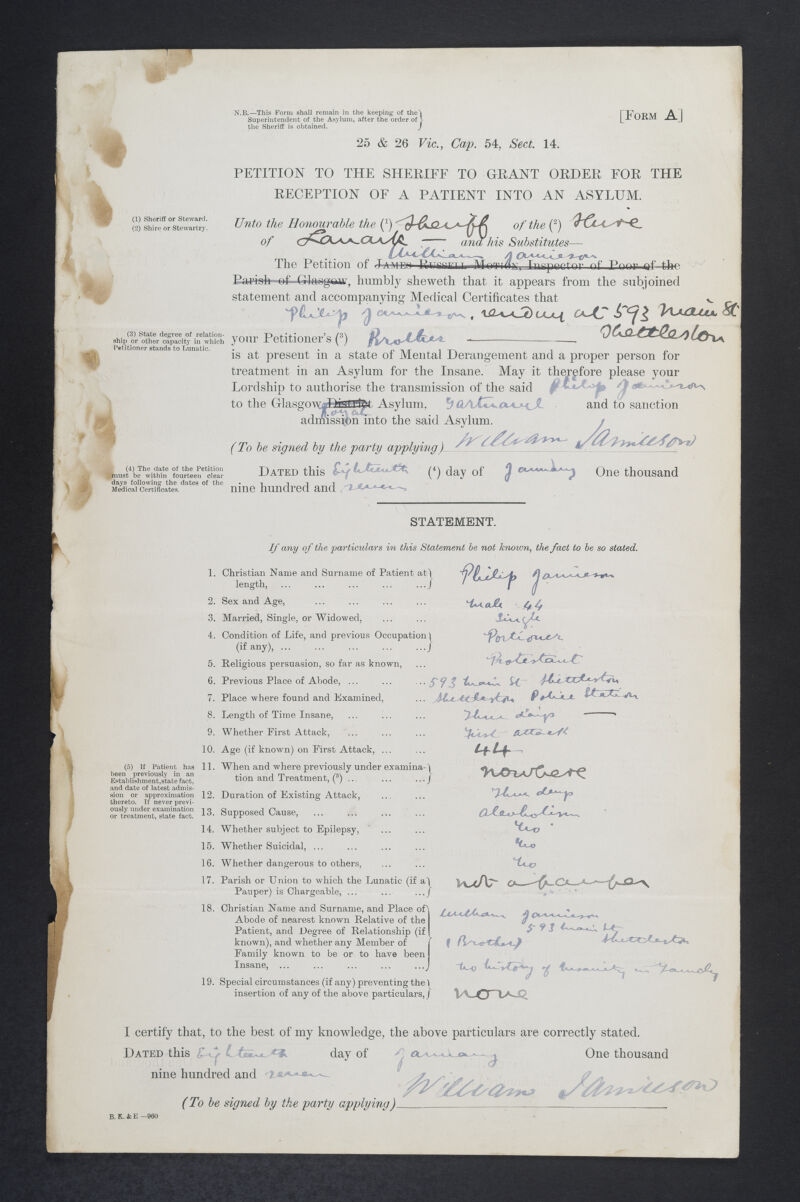 N.B.—This Form shall remain in the keeping of the
Superintendent of the Asylum, after the order of
the Sheriff is obtained.
[FORM A]
25 & 26 Vic., Cap. 54, Sect. 14.
PETITION TO THE SHERIFF TO GRANT ORDER FOR THE
RECEPTION OF A PATIENT INTO AN ASYLUM.
(1) Sheriff or Steward.
(2) Shire or Stewartry.
Unto the Honourable the (1) Sheriff of the (2) Shire
of Lanark — and his Substitutes—
William Jamieson
The Petition of JAMES RUSSELL MOTION, Inspector of Poor of the
Parish of Glasgow, humbly sheweth that it appears from the subjoined
statement and accompanying Medical Certificates that
Philip Jamieson, residing at 593 Main St
Shettleston
(3) State degree of relation-
ship or other capacity in which
Petitioner stands to Lunatic.
your Petitioner's (3) Brother
is at present in a state of Mental Derangement and a proper person for
treatment in an Asylum for the Insane. May it therefore please your
Lordship to authorise the transmission of the said Philip Jamieson
to the Glasgow District Asylum, Gartnavel and to sanction
Royal
admission into the said Asylum.
(To be signed by the party applying) William Jamieson
(4) The date of the Petition
must be within fourteen clear
days following the dates of the
Medical Certificates.
DATED this Eighteenth (4) day of January One thousand
nine hundred and seven
STATEMENT.
If any of the particulars in this Statement be not known, the fact to be so stated.
1. Christian Name and Surname of Patient at
length, ... Philip Jamieson
2. Sex and Age, ... Male 44
3. Married, Single, or Widowed, ... Single
4. Condition of Life, and previous Occupation
(if any), ... Portioner
5. Religious persuasion, so far as known, ... Protestant
6. Previous Place of Abode, ... 593 Main St Shettleston
7. Place where found and Examined, ... Shettleston Police Station
8. Length of Time Insane, ... Three days —
9. Whether First Attack, ... First attack
10. Age (if known) on First Attack, ... 44
(5) If Patient has
been previously in an
Establishment, state fact,
and date of latest admis-
sion or approximation
thereto. If never previ-
ously under examination
or treatment, state fact.
11. When and where previously under examina-
tion and Treatment, (5) ... nowhere
12. Duration of Existing Attack, ... Three days
13. Supposed Cause, ... alcoholism
14. Whether subject to Epilepsy, ... No
15. Whether Suicidal, ... No
16. Whether dangerous to others, ... No
17. Parish or Union to which the Lunatic (if a
Pauper) is Chargeable, ... not a pauper
18. Christian Name and Surname, and Place of
Abode of nearest known Relative of the
Patient, and Degree of Relationship (if
known), and whether any Member of
Family known to be or to have been
Insane, ...
William Jamieson
593 Main St
(Brother) Shettleston
No history of Insanity in Family
19. Special circumstances (if any) preventing the
insertion of any of the above particulars, none
I certify that, to the best of my knowledge, the above particulars are correctly stated.
DATED this Eighteenth day of January One thousand
nine hundred and seven
(To be signed by the party applying) William Jamieson
B. K. & E —960